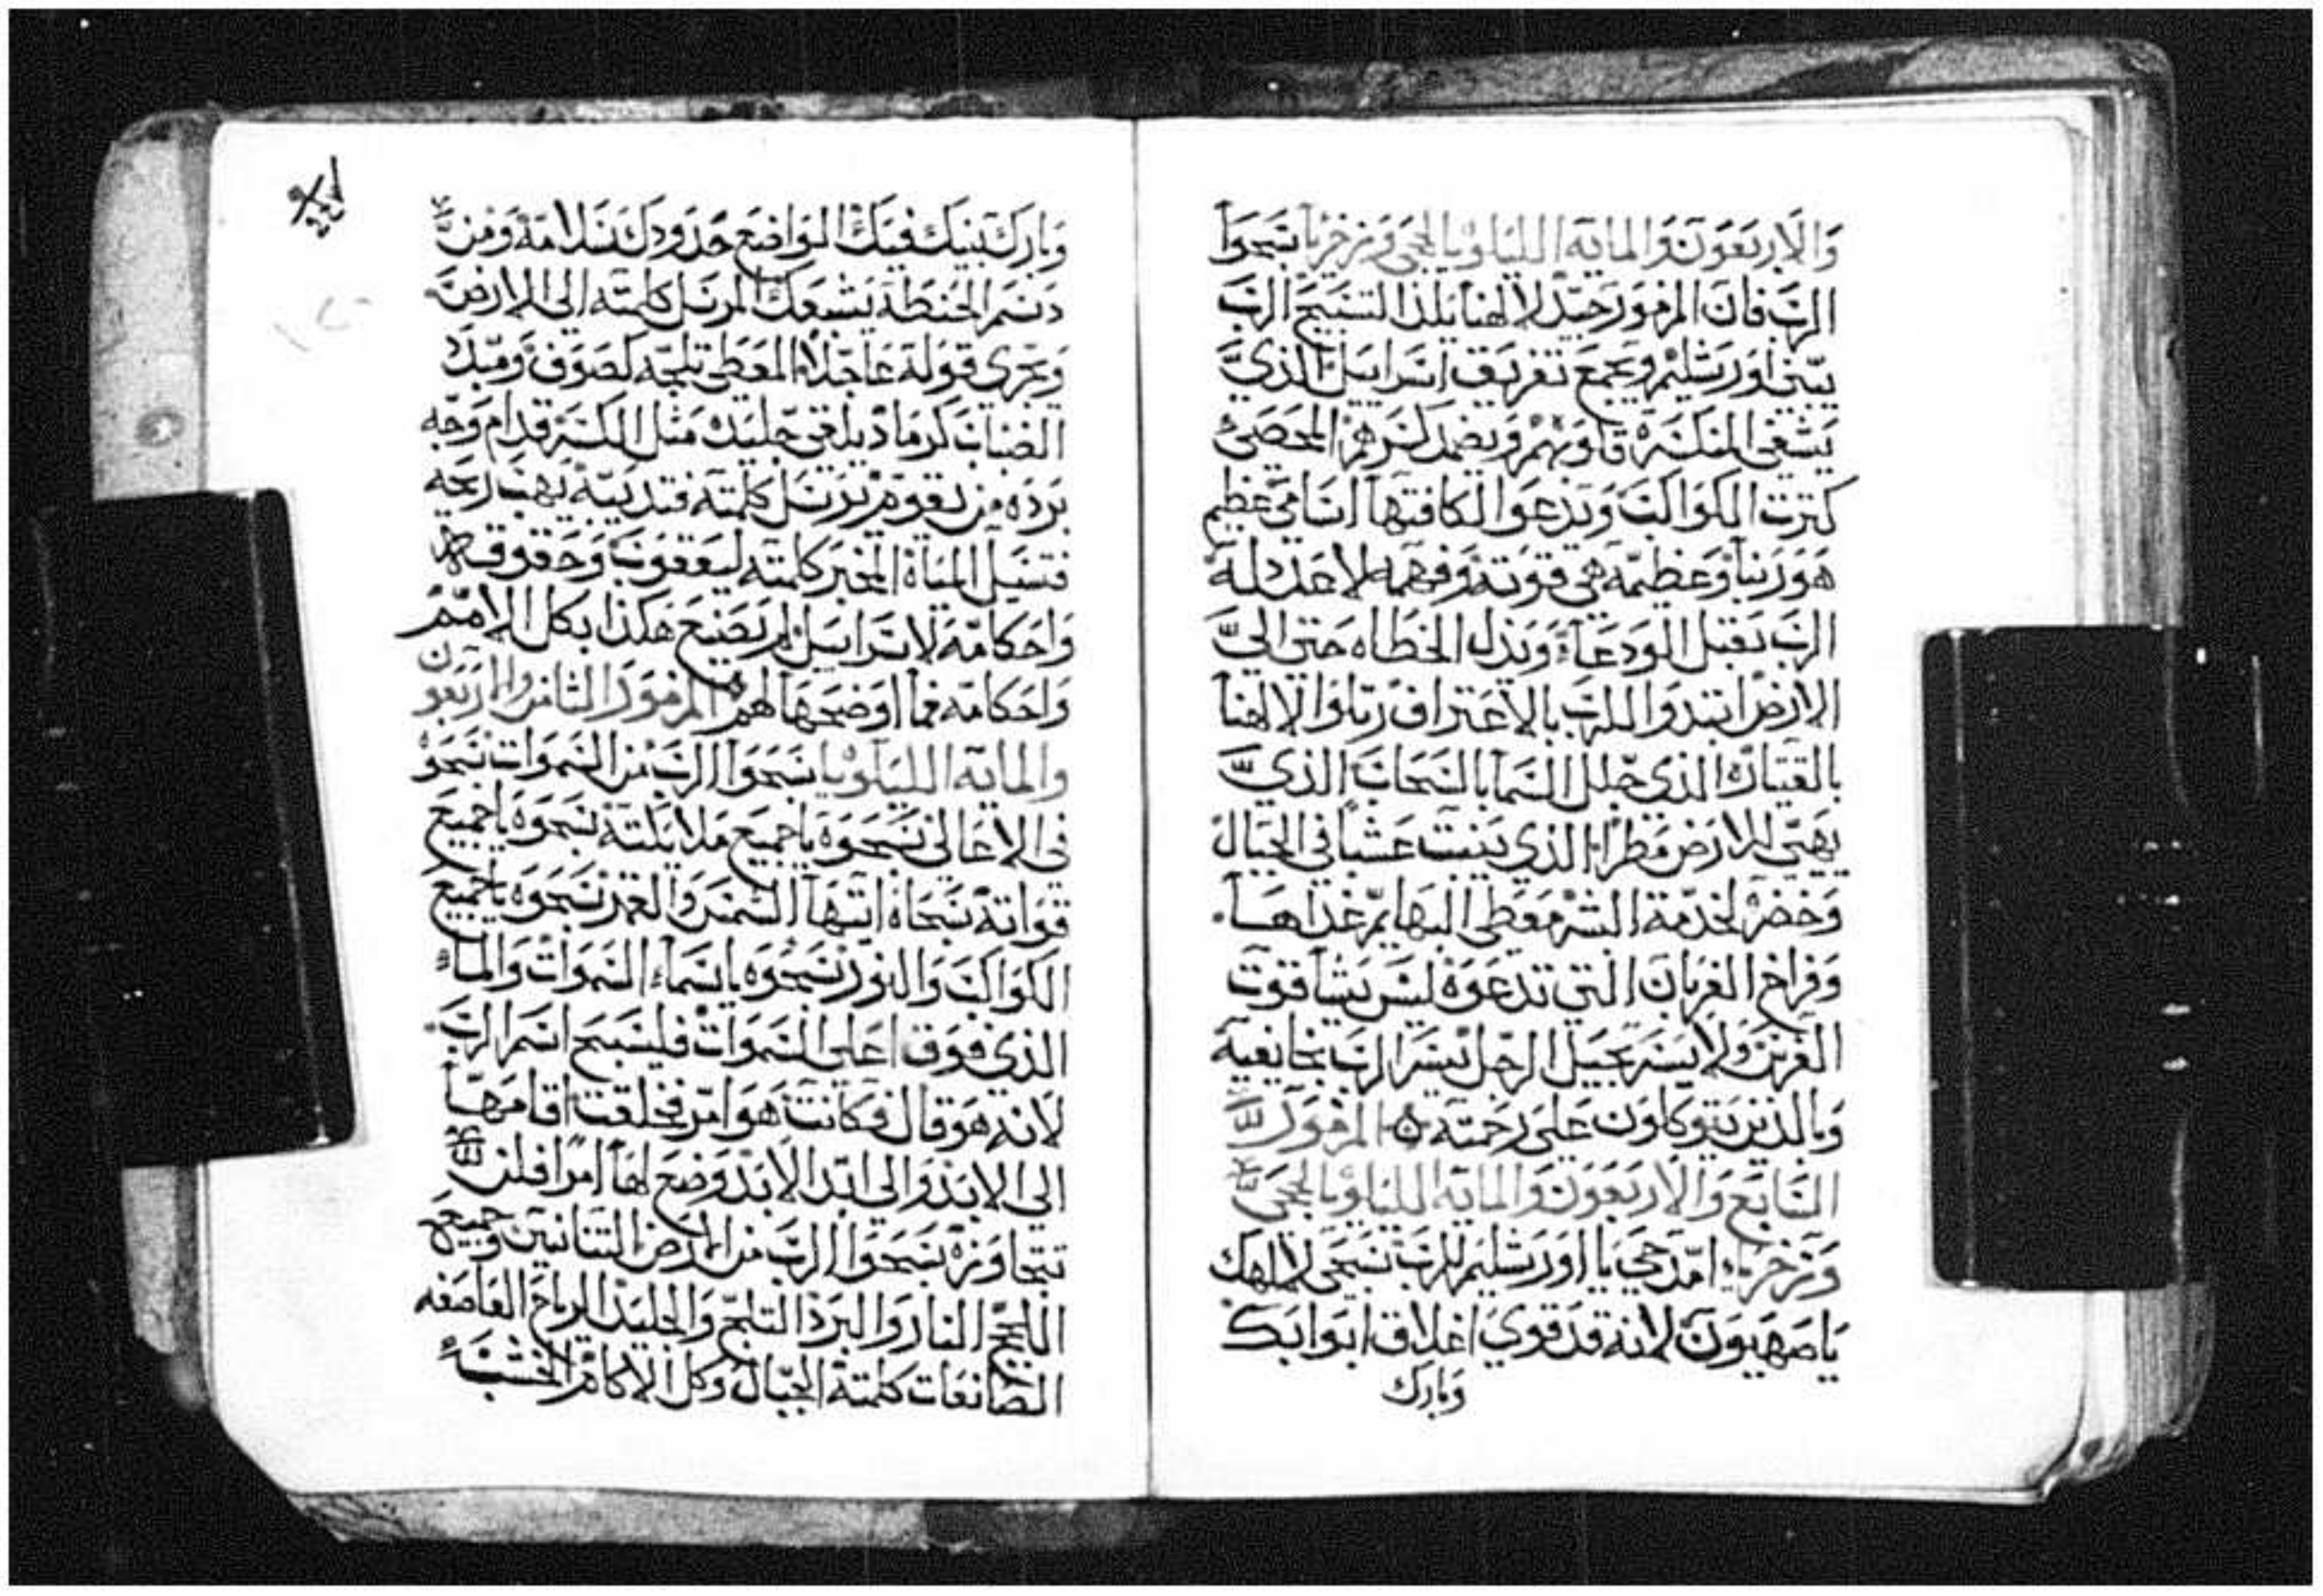 والاربعون والمايه الليلويا لحجي وزخريا سبحوا
الرب فان المزمور جيد لالهنا يلذ التسبيح الرب
يبني اورشليم ويجمع تفريق اسراييل الذي
يشفي المنكسرة قلوبهم ويضمد كسرهم المحصي
كترت الكواكب وتدعوا لكافتها اسامي عظيم
هو ربنا وعظيمه هي قوته وفهمه لا عدد له
الرب يقبل الودعاء ويذل الخطاه حتى الي
الارض ابتدوا للرب بالاعتراف رتلوا لالهنا
بالقيتاره الذي جلل السما بالسحاب الذي
يهيي للارض مطرا الذي ينبت عشبا في الجبال
وخضر لخدمة البشر معطي البهايم غداها
وفراخ الغربان التي تدعوه ليس يشا قوت
الفرس ولا يسر بجبل الرجل يسر الرب بخايفيه
وبالذين يتوكلون على رحمته المزمور
السابع والاربعون والمايه الليلويا لحجي
وزخريا امدحي يا اورشليم للرب سبحي لالهك
يا صهيون لانه قد قوي اغلاق ابوابك
وبارك
وبارك بنيك فيك الواضع حدودك سلامة ومن
دسم الحنطة يشبعك المرسل كلمته الى الارض
ويجري قوله عاجلا المعطي تلجه كصوف ومبدد
الضباب كرماد يلقي جليده مثل الكسر قدام وجه
برده من يقوم يرسل كلمته فتديبه يهب ريحه
فتسيل المياه المخبر كلمته ليعقوب وحقوقه
واحكامه لاسراييل لم يصنع هكذا بكل الامم
واحكامه فما اوضحها لهم المزمور الثامن والاربعون
والمايه الليلويا سبحوا الرب من السموات سبحوه
في الاعالي سبحوه يا جميع ملايكته سبحوه يا جميع
قواته سبحاه ايتها الشمس والقمر سبحوه يا جميع
الكواكب والنور سبحوه يا سماء السموات والماء
الذي فوق اعلى السموات فليسبح اسم الرب
لانه هو قال فكانت هو امر فخلقت اقامها
الى الابد والى ابد الابد وضع لها امرا فلن
تتجاوزه سبحوا الرب من الارض التنانين وجميع
اللجج النار والبرد التلج والجليد الرياح العاصفه
الصانعات كلمته الجبال وكل الاكام الخشب